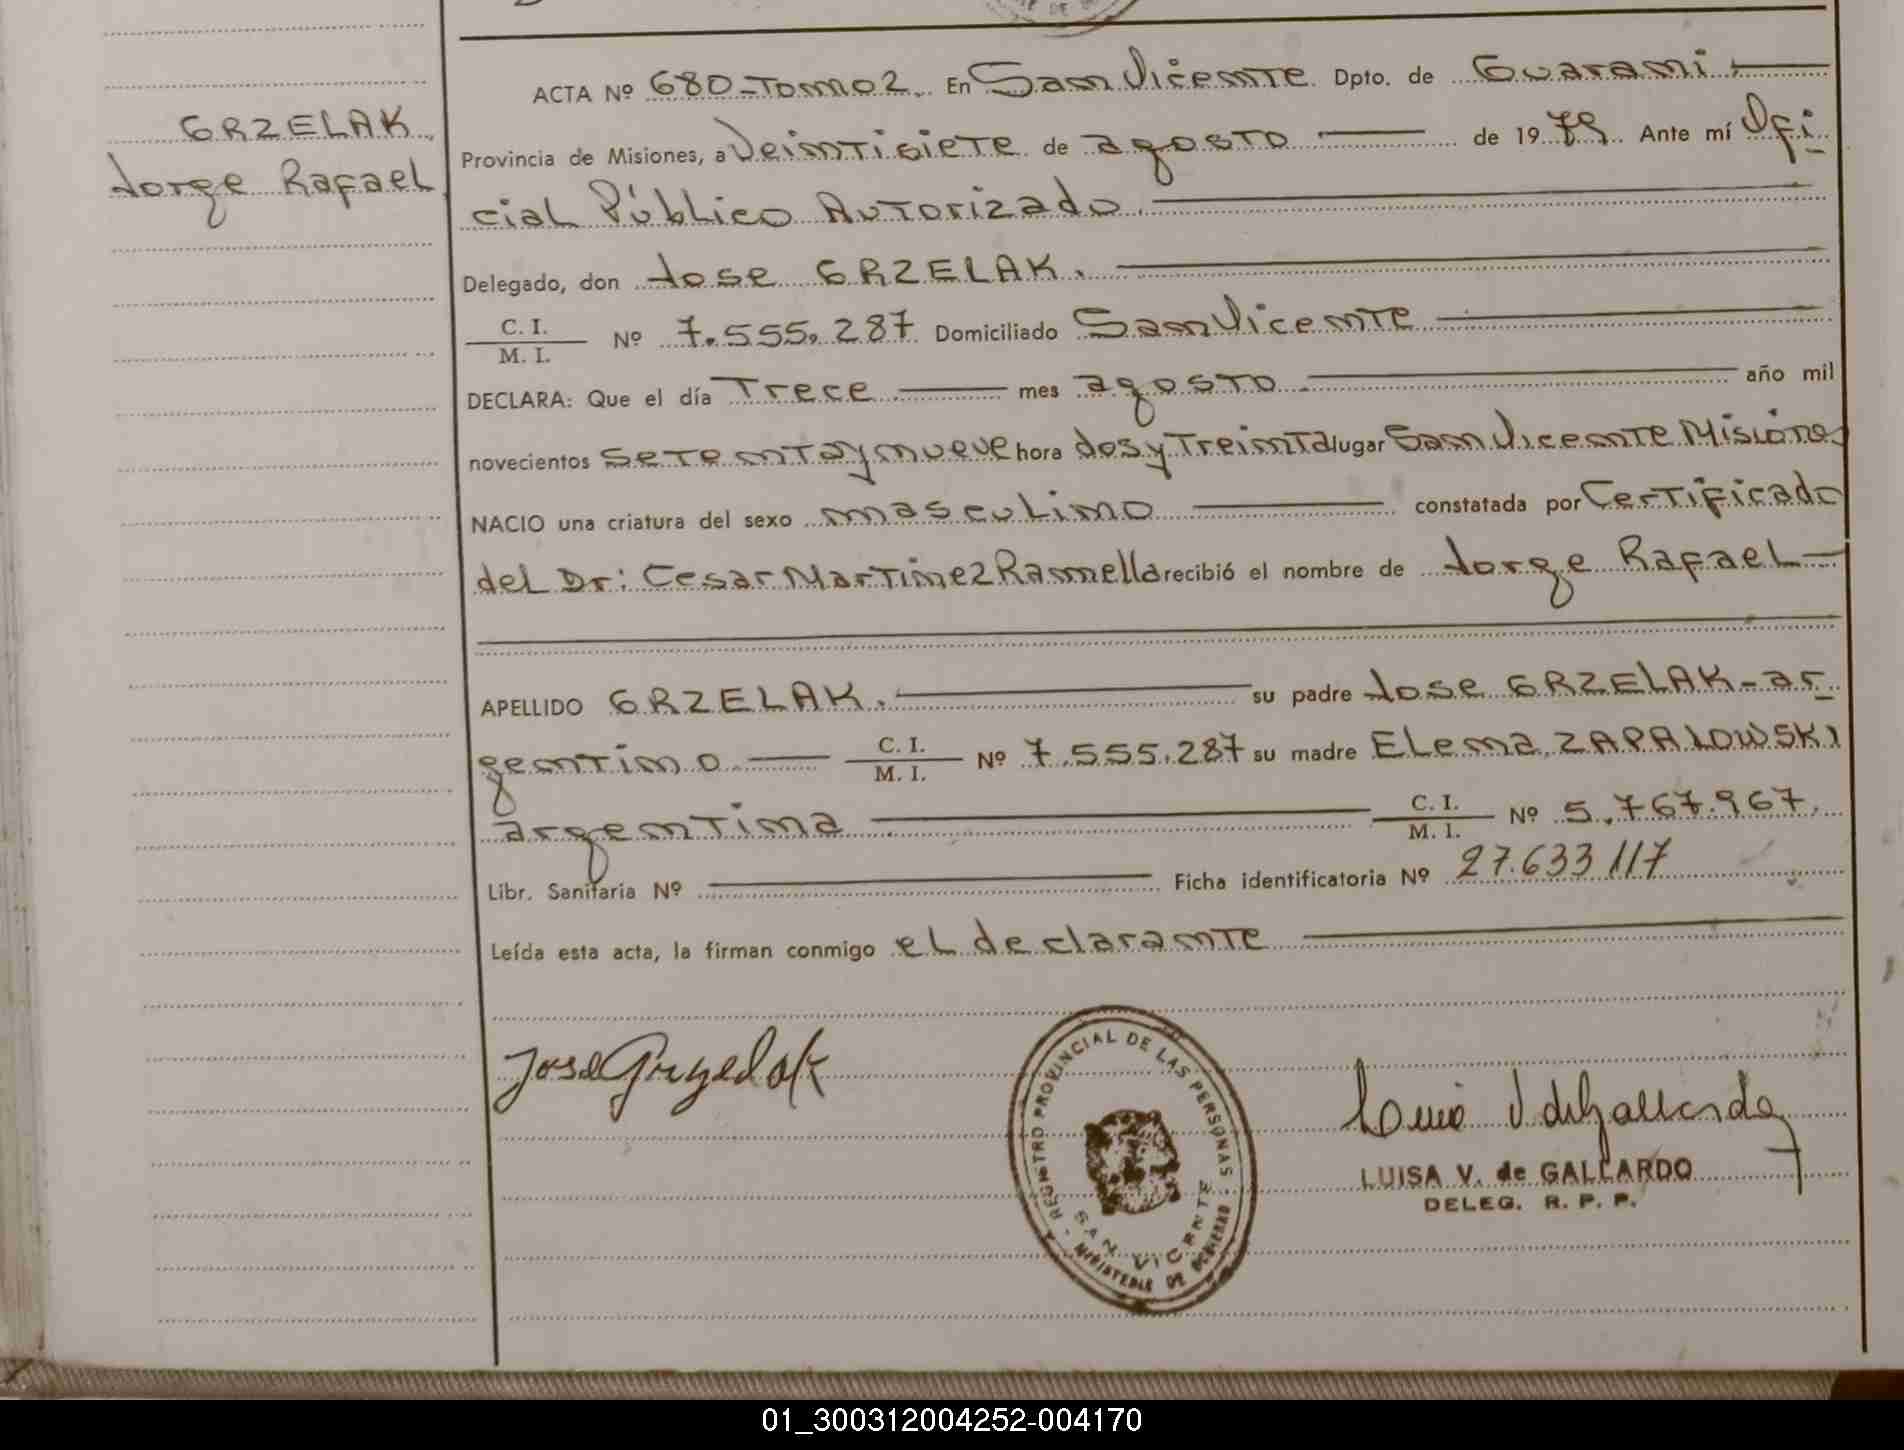 GRZELAK
Jorge Rafael
ACTA Nº 680-Tomo 2. En San Vicente Dpto. de Guarani
Provincia de Misiones, a Veintisiete de agosto de 1979 Ante mí Ofi
cial Público Autorizado.
Delegado, don Jose GRZELAK.
C. I.
M. I. Nº 7.555.287 Domiciliado San Vicente
DECLARA: Que el día Trece mes agosto año mil
novecientos setenta y nueve hora dos y Treinta lugar San Vicente Misiones
NACIO una criatura del sexo masculino constatada por Certificado
del Dr: Cesar Martinez Ramella recibió el nombre de Jorge Rafael
APELLIDO GRZELAK. su padre Jose GRZELAK-ar
gentino C. I. M. I. Nº 7.555.287 su madre Elena ZAPALOWSKI
argentina C. I. M. I. Nº 5.767.967.
Libr. Sanitaria Nº Ficha identificatoria Nº 27.633 117
Leída esta acta, la firman conmigo el declarante
Jose Grzelak
REGISTRO PROVINCIAL DE LAS PERSONAS
SAN VICENTE
MINISTERIO DE GOBIERNO
Luisa V de Gallardo
LUISA V. de GALLARDO
DELEG. R. P. P.
01_300312004252-004170